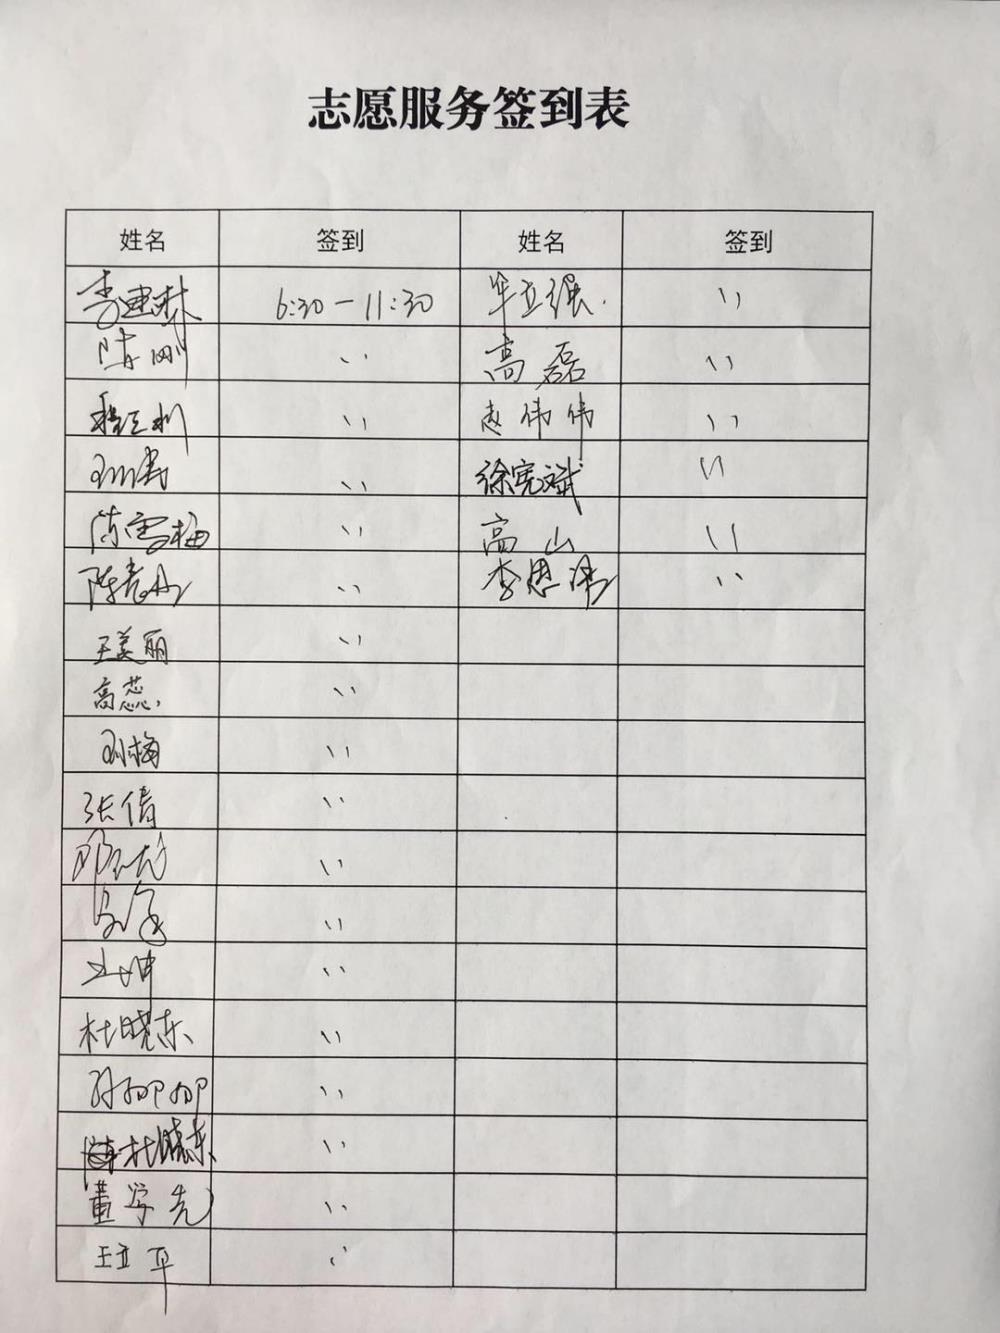 志愿服务签到表
姓名 签到 姓名 签到
李建林 6:30-11:30 毕立强 、、
陈刚 、、 高磊 、、
程立利 、、 赵伟伟 、、
、、 徐宪斌 、、
陈雪梅 、、 高山 、、
陈 、、 李思 、、
王美丽 、、
高蕊 、、
孙梅 、、
张倩 、、
、、
、、
、、
杜晓东 、、
孙卿卿 、、
杜晓东 、、
董学先 、、
王立平 、、